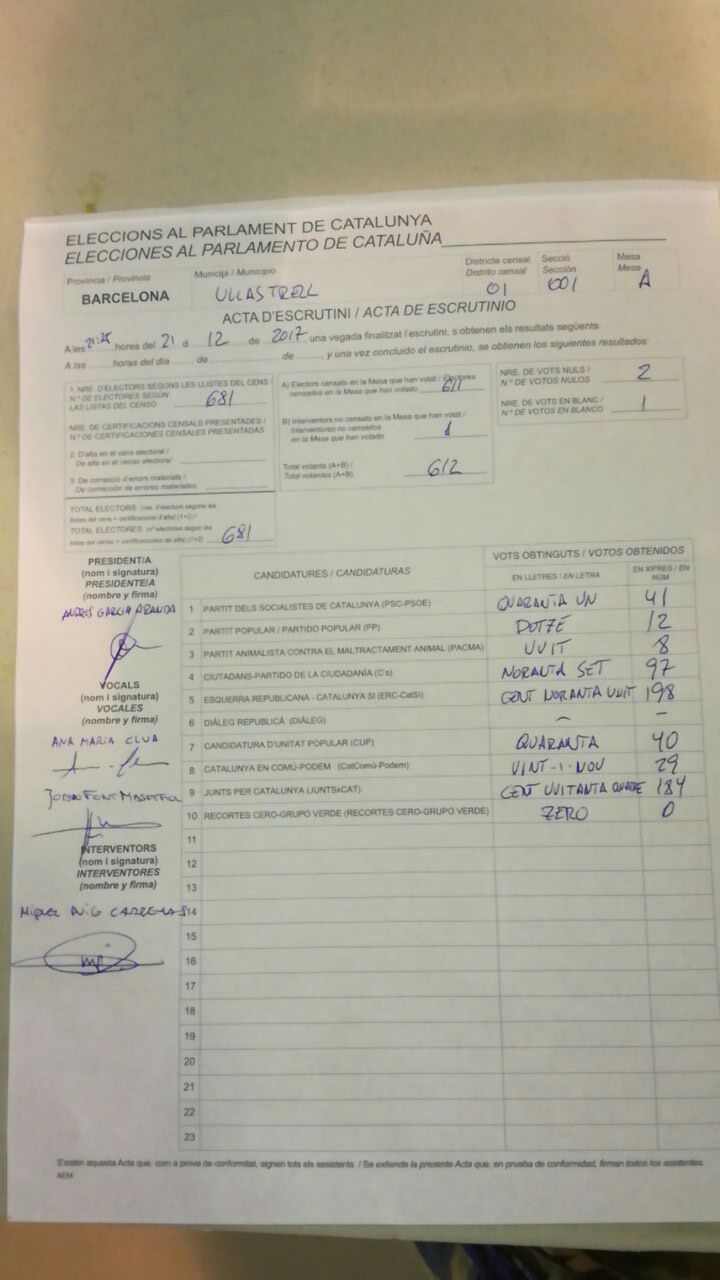 ELECCIONS AL PARLAMENT DE CATALUNYA
ELECCIONES AL PARLAMENTO DE CATALUÑA
Provincia / Provincia
BARCELONA
Municipi / Municipio
ULLASTRELL
Districte censal
Distrito censal
01
Secció
Sección
001
Mesa
Mesa
A
ACTA D'ESCRUTINI / ACTA DE ESCRUTINIO
A les 21:25 hores del 21 d 12 de 2017 una vegada finalitzat l'escrutini, s'obtenen els resultats següents:
A las horas del día de de , y una vez concluido el escrutinio, se obtienen los siguientes resultados:
1. NRE. D'ELECTORS SEGONS LES LLISTES DEL CENS /
N.º DE ELECTORES SEGÚN
LAS LISTAS DEL CENSO 681
NRE. DE CERTIFICACIONS CENSALS PRESENTADES /
N.º DE CERTIFICACIONES CENSALES PRESENTADAS
2. D'alta en el cens electoral /
De alta en el censo electoral:
3. De correcció d'errors materials /
De corrección de errores materiales
TOTAL ELECTORS: (nre. d'electors segons les
llistes del cens + certificacions d'alta) (1+2) /
TOTAL ELECTORES: (n.º electores según las
listas del censo + certificaciones de alta) (1+2) 681
A) Electors censats en la Mesa que han votat / Electores
censados en la Mesa que han votado 611
B) Interventors no censats en la Mesa que han votat /
Interventores no censados
en la Mesa que han votado 1
Total votants (A+B) /
Total votantes (A+B) 612
NRE. DE VOTS NULS /
N.º DE VOTOS NULOS 2
NRE. DE VOTS EN BLANC /
N.º DE VOTOS EN BLANCO 1
PRESIDENT/A
(nom i signatura)
PRESIDENTE/A
(nombre y firma)
ANDRES GARCIA ARANDA
VOCALS
(nom i signatura)
VOCALES
(nombre y firma)
ANA MARIA CLUA
INTERVENTORS
(nom i signatura)
INTERVENTORES
(nombre y firma)
CANDIDATURES / CANDIDATURAS
VOTS OBTINGUTS / VOTOS OBTENIDOS
EN LLETRES / EN LETRA
EN XIFRES / EN NÚM
1 PARTIT DELS SOCIALISTES DE CATALUNYA (PSC-PSOE) QUARANTA UN 41
2 PARTIT POPULAR / PARTIDO POPULAR (PP) DOTZE 12
3 PARTIT ANIMALISTA CONTRA EL MALTRACTAMENT ANIMAL (PACMA) VUIT 8
4 CIUTADANS-PARTIDO DE LA CIUDADANÍA (C's) NORANTA SET 97
5 ESQUERRA REPUBLICANA - CATALUNYA SI (ERC-CatSÍ) CENT NORANTA VUIT 198
6 DIÀLEG REPUBLICÀ (DIÀLEG) – –
7 CANDIDATURA D'UNITAT POPULAR (CUP) QUARANTA 40
8 CATALUNYA EN COMÚ-PODEM (CatComú-Podem) VINT-I-NOU 29
9 JUNTS PER CATALUNYA (JUNTSxCAT) CENT VUITANTA QUATRE 184
10 RECORTES CERO-GRUPO VERDE (RECORTES CERO-GRUPO VERDE) ZERO 0
11
12
13
14
15
16
17
18
19
20
21
22
23
S'estén aquesta Acta que, com a prova de conformitat, signen tots els assistents. / Se extiende la presente Acta que, en prueba de conformidad, firman todos los asistentes.
AEM